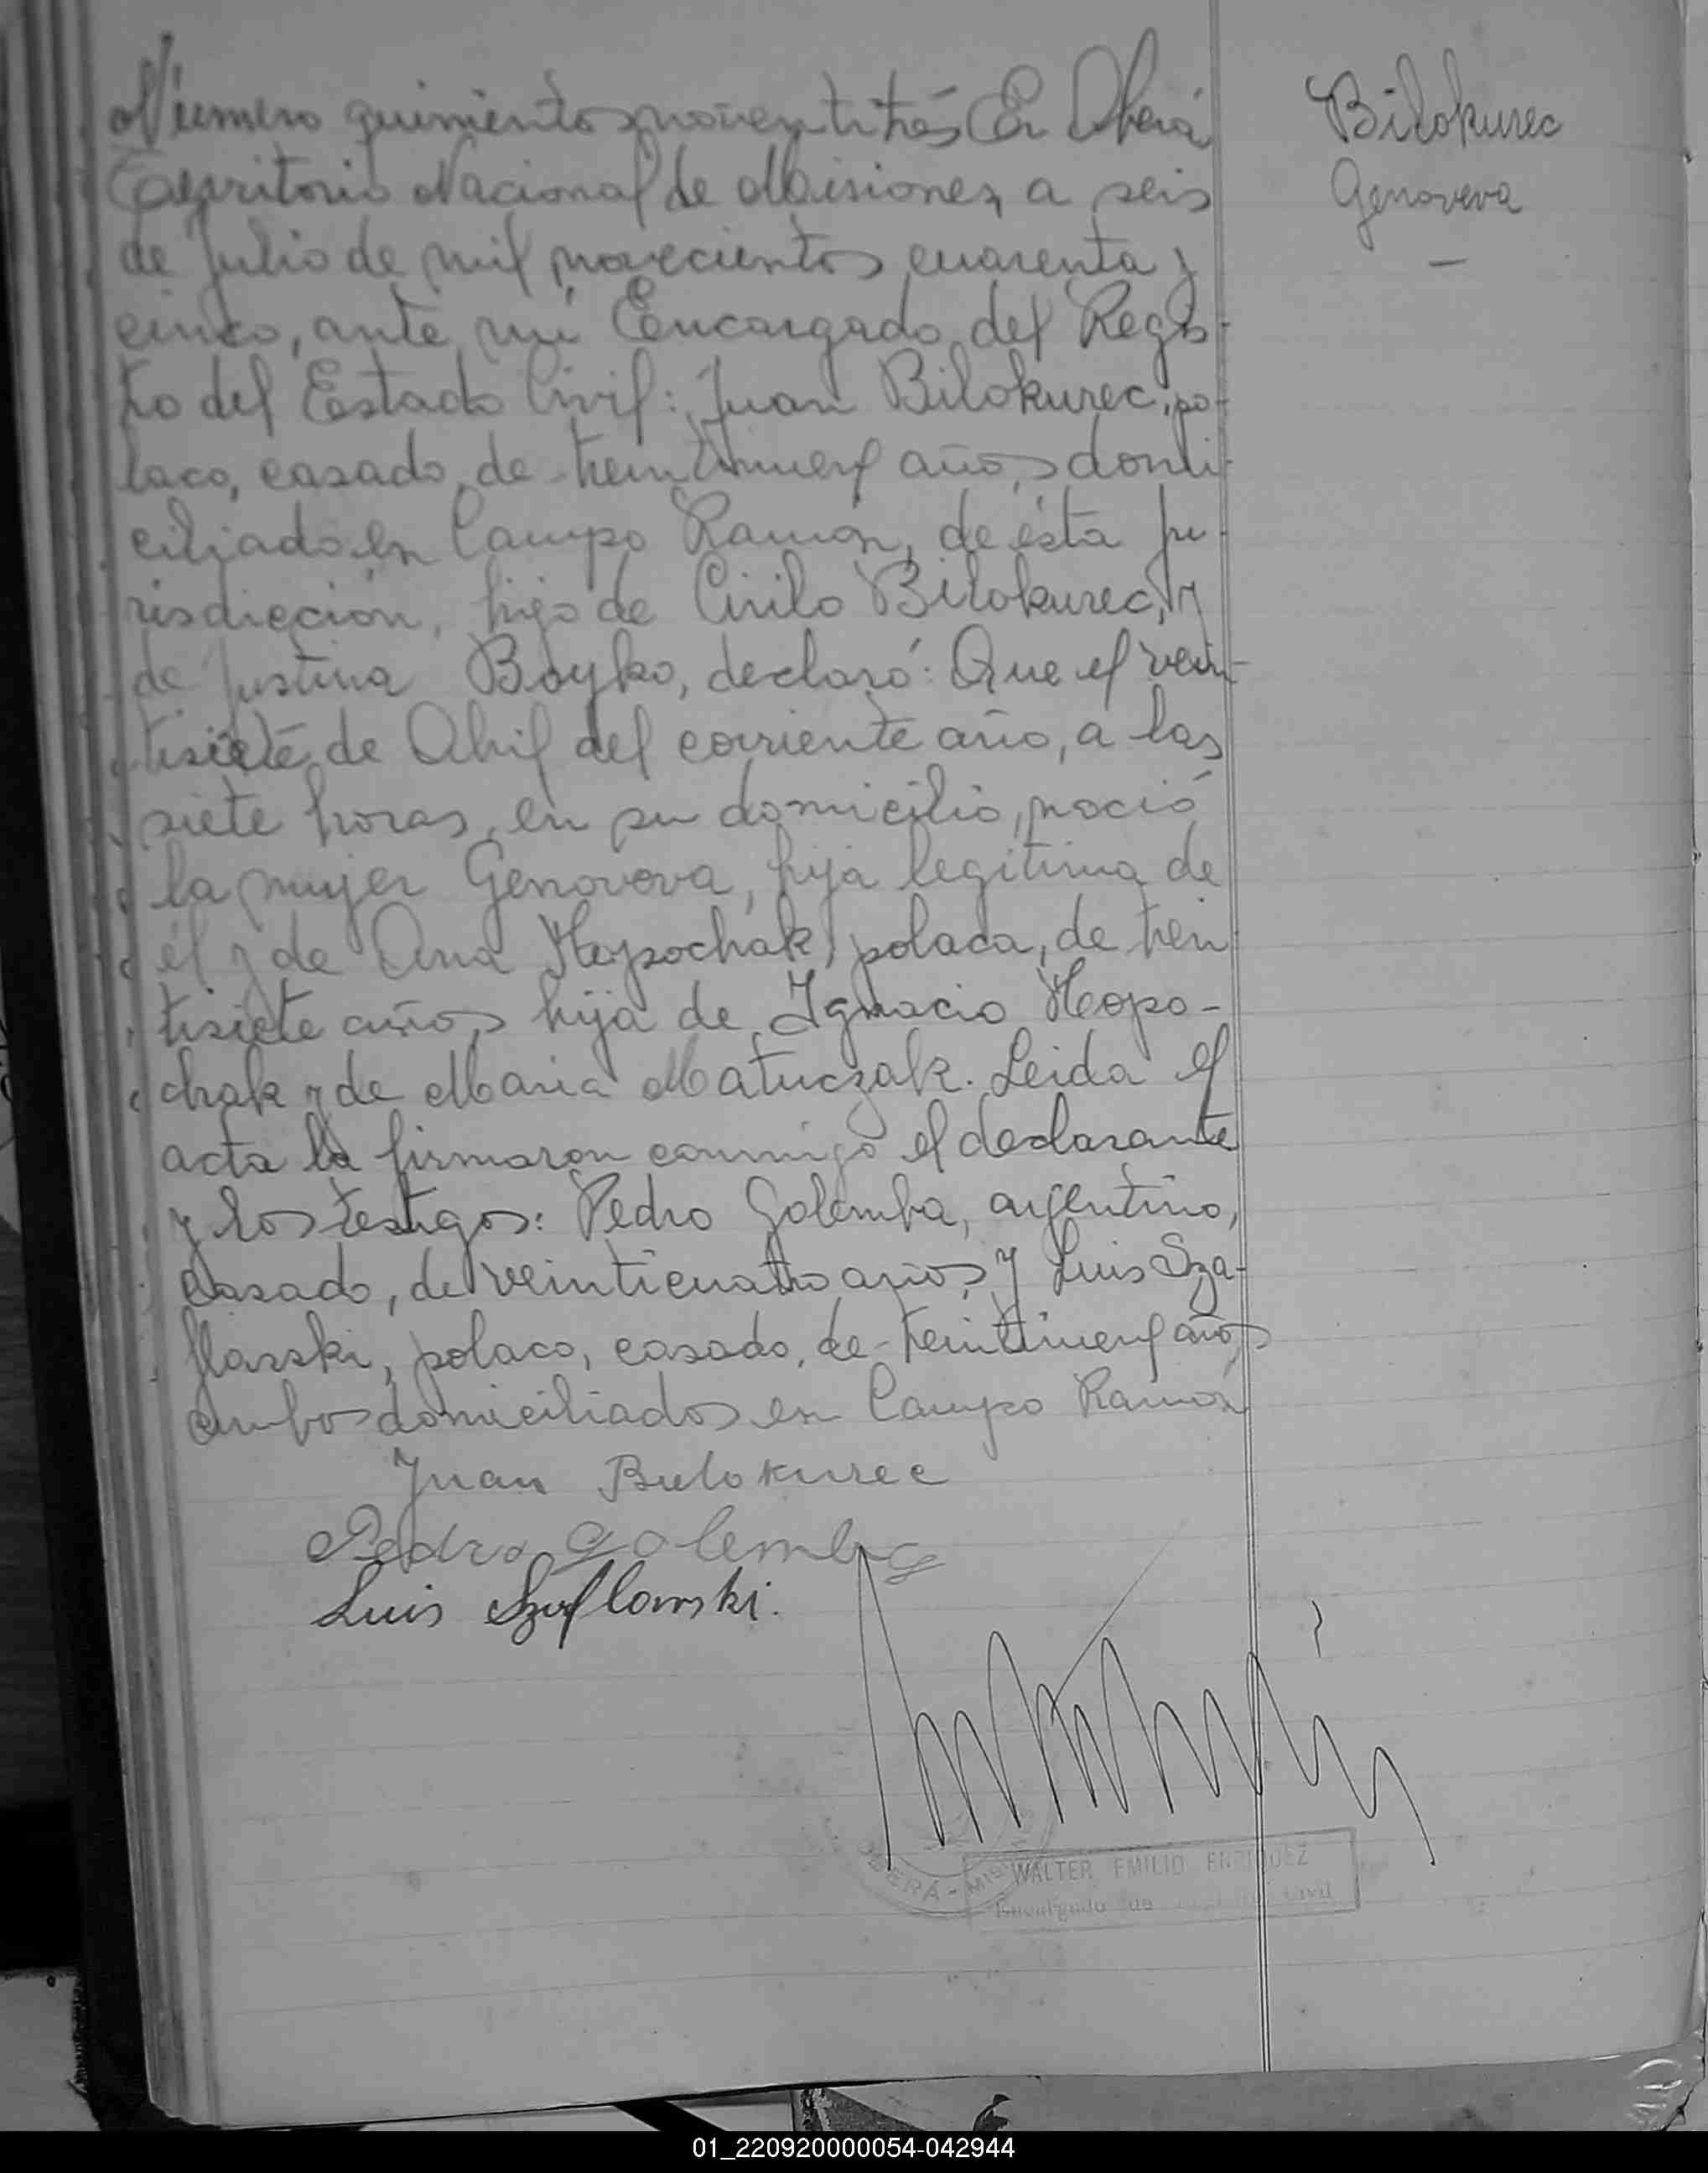 Número quinientos noventitrés En Oberá
Territorio Nacional de Misiones, a seis
de Julio de mil novecientos cuarenta y
cinco, ante mí Encargado del Regis-
tro del Estado Civil: Juan Bilokurec, po-
laco, casado, de treintinueve años, domi-
ciliado en Campo Ramón, de ésta ju-
risdicción, hijo de Cirilo Bilokurec, y
de Justina Boyko, declaró: Que el vein-
tisiete de Abril del corriente año, a las
siete horas, en su domicilio, nació
la mujer Genoveva, hija legítima de
él y de Ana Hopochak, polaca, de trein
tisiete años, hija de Ignacio Hopo-
chak y de Maria Matuczak. Leida el
acta la firmaron conmigo el declarante
y los testigos: Pedro Golemba, argentino,
casado, de veinticuatro años, y Luis Sza-
flarski, polaco, casado, de treintinueve años
ambos domiciliados en Campo Ramón
Juan Bulokurec
Pedro Golemba
Luis Szaflarski.
Bilokurec
Genoveva
—
OBERÁ - MISIONES
WALTER EMILIO ENRIQUEZ
Encargado del Civil
01_220920000054-042944